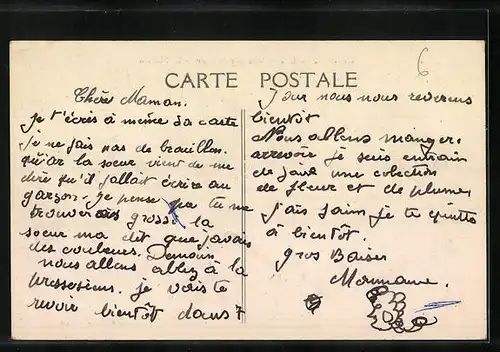 6
CARTE POSTALE
Chère Maman.
je t'écris à même sa carte
je ne fais pas de brouillon.
la sœur vient de me
dire qu'il fallait écrire au
je pense tu me
grossi la
sœur ma dit que javais
des couleurs. Demain
nous allons allez à la
je vais te
revoir bientôt dans 7
jour nous nous reverons
bientôt
Nous allons manger.
arrevoire je suis entrain
de faire une colection
de fleur et de plumes
j'ais faim je te quitte
à bientôt.
gros Baiser